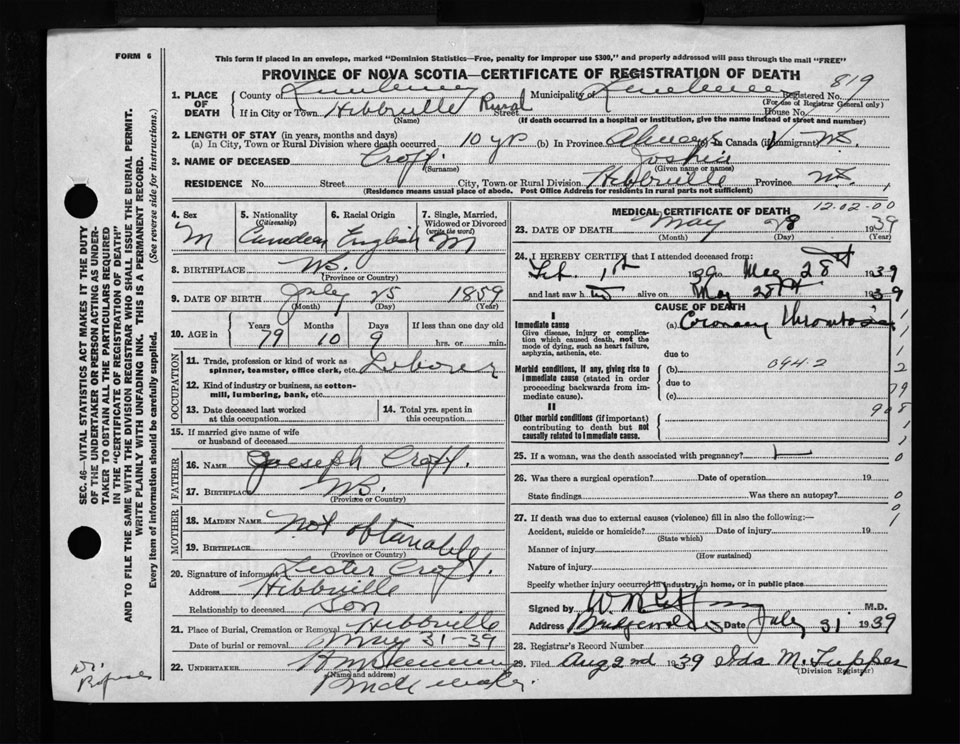 FORM 6
This form if placed in an envelope, marked "Dominion Statistics—Free, penalty for improper use $300," and properly addressed will pass through the mail "FREE"
PROVINCE OF NOVA SCOTIA—CERTIFICATE OF REGISTRATION OF DEATH
819
1. PLACE OF DEATH
County of Municipality of Registered No.
(For use of Registrar General only)
If in City or Town Hebbville Rural Street House No.
(Name) (If death occurred in a hospital or institution, give the name instead of street and number)
2. LENGTH OF STAY (in years, months and days)
(a) In City, Town or Rural Division where death occurred 10 yrs (b) In Province Always (c) In Canada (if immigrant)
3. NAME OF DECEASED Croft
(Surname) (Given name or names)
RESIDENCE No. Street City, Town or Rural Division Hebbville Province N.S.
(Residence means usual place of abode. Post Office Address for residents in rural parts not sufficient)
4. Sex
M
5. Nationality
(Citizenship)
6. Racial Origin
English
7. Single, Married, Widowed or Divorced
(write the word)
M
8. BIRTHPLACE N.S.
(Province or Country)
9. DATE OF BIRTH July 25 1859
(Month) (Day) (Year)
10. AGE in Years Months Days If less than one day old
79 10 9 hrs. or min.
OCCUPATION
11. Trade, profession or kind of work as spinner, teamster, office clerk, etc. Laborer
12. Kind of industry or business, as cotton-mill, lumbering, bank, etc.
13. Date deceased last worked at this occupation
14. Total yrs. spent in this occupation
15. If married give name of wife or husband of deceased
FATHER
16. Name Joeseph Croft
17. Birthplace N.S.
(Province or Country)
MOTHER
18. Maiden Name Not obtanable
19. Birthplace
(Province or Country)
20. Signature of informant Lester Croft
Address Hebbville
Relationship to deceased Son
21. Place of Burial, Cremation or Removal Hebbville
Date of burial or removal May 31-39
22. Undertaker
(Name and address)
MEDICAL CERTIFICATE OF DEATH 12.02.00
23. DATE OF DEATH May 28 1939
(Month) (Day) (Year)
24. I HEREBY CERTIFY that I attended deceased from:
Feb. 1st 1939 to May 28th 1939
and last saw h alive on May 28th 1939
CAUSE OF DEATH
I
Immediate cause
Give disease, injury or complication which caused death, not the mode of dying, such as heart failure, asphyxia, asthenia, etc.
(a) Coronary Thrombosis
due to
Morbid conditions, if any, giving rise to immediate cause (stated in order proceeding backwards from immediate cause).
(b) 094.2
due to
(c)
II
Other morbid conditions (if important) contributing to death but not causally related to immediate cause.
79
908
25. If a woman, was the death associated with pregnancy?
26. Was there a surgical operation? Date of operation 19
State findings Was there an autopsy?
27. If death was due to external causes (violence) fill in also the following:—
Accident, suicide or homicide? Date of injury 19
(State which)
Manner of injury
(How sustained)
Nature of injury
Specify whether injury occurred in industry, in home, or in public place
Signed by M.D.
Address Date July 31 1939
28. Registrar's Record Number
29. Filed Aug 2nd 1939 Ida M. Tupper
(Division Registrar)
SEC. 46—VITAL STATISTICS ACT MAKES IT THE DUTY
OF THE UNDERTAKER OR PERSON ACTING AS UNDER-
TAKER TO OBTAIN ALL THE PARTICULARS REQUIRED
IN THE "CERTIFICATE OF REGISTRATION OF DEATH"
AND TO FILE THE SAME WITH THE DIVISION REGISTRAR WHO SHALL ISSUE THE BURIAL PERMIT.
WRITE PLAINLY WITH UNFADING INK. THIS IS A PERMANENT RECORD.
Every item of information should be carefully supplied. (See reverse side for instructions.)